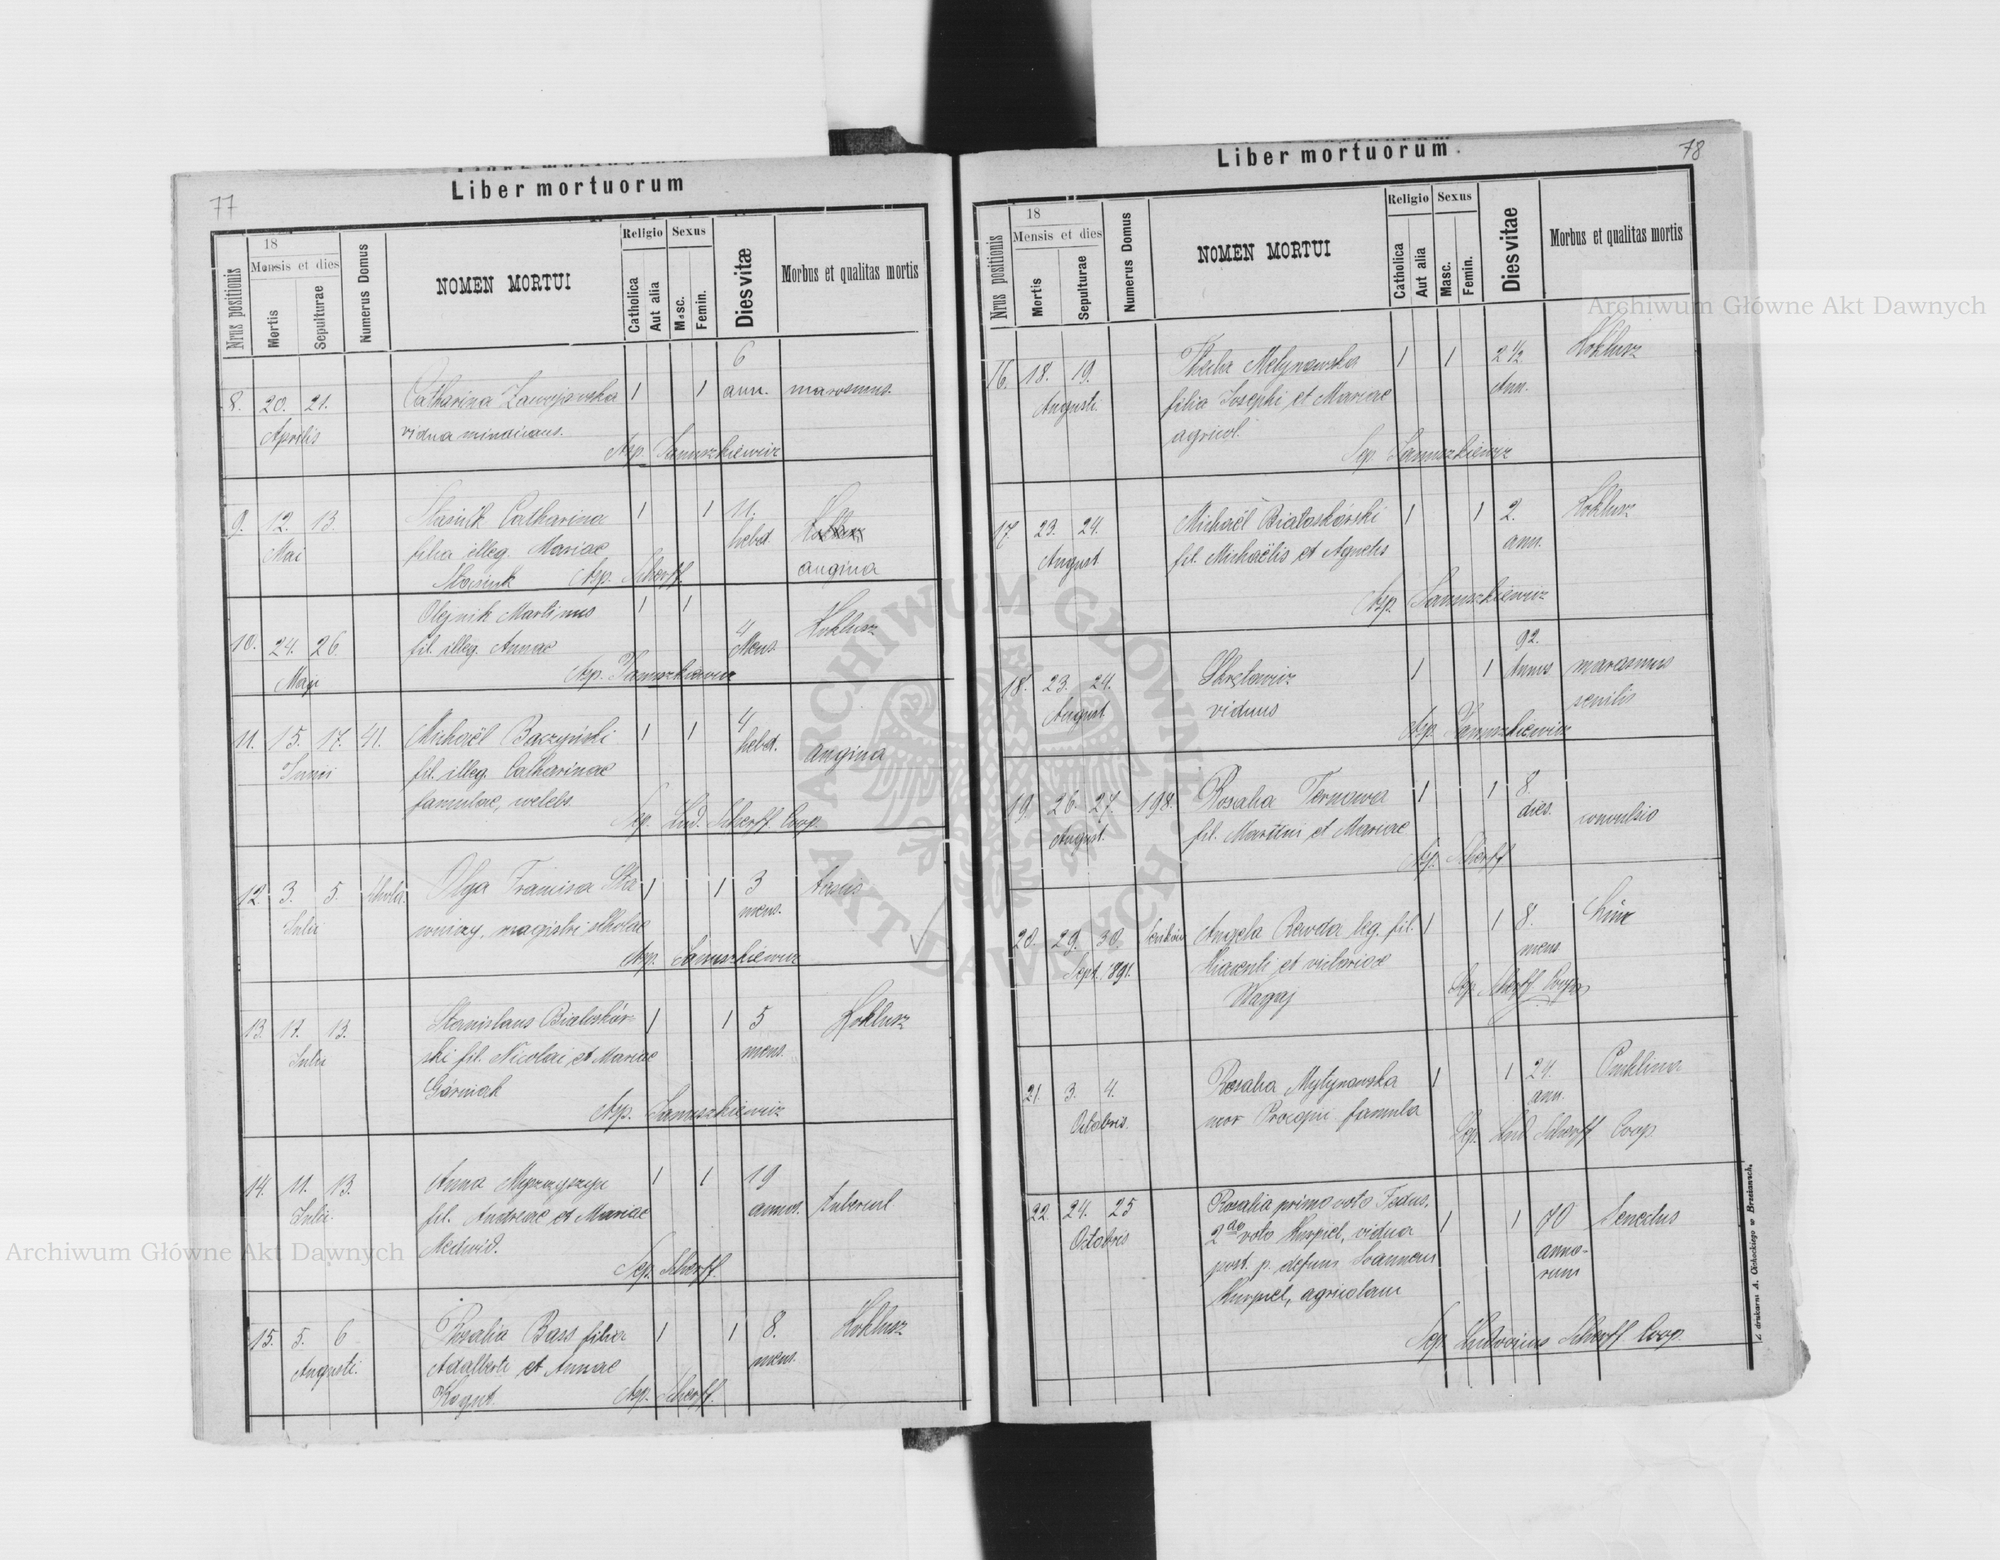 77
Liber mortuorum
Nrus positionis
18
Mensis et dies
Mortis
Sepulturae
Numerus Domus
NOMEN MORTUI
Religio
Catholica
Aut alia
Sexus
Masc.
Femin.
Dies vitæ
Morbus et qualitas mortis
8. 20. 21. Catharina 1 1 6
Aprilis vidua ann.
Sep. Januszkiewicz
9. 12. 13. Stasiuk Catharina 1 1 11.
Mai filia illeg. Mariae hebd.
Stasiuk Sep. Scherff angina
10. 24. 26. Olejnik Martinus 1 1 4 Koklusz
Maji fil. illeg. Annae Mens.
Sep. Januszkiewicz
11. 15. 17. 41. Michaël Baczyński 1 1 4 angina
Junii fil. illeg. Catharinae hebd.
famulae, coelebs
Sep. Lud. Scherff Coop.
12. 3. 5. schola Olga Francisca Sta 1 1 3
Julii magistri scholae mens.
Sep. Januszkiewicz
13. 12. 13. Stanislaus Białoskór 1 1 5 Koklusz
Julii ski fil. Nicolai et Mariae mens.
Górniak
Sep. Januszkiewicz
14. 11. 13. Anna 1 1 19 tubercul
Julii fil. Andreae et Mariae annor.
Medwid.
Sep. Scherff.
15. 5. 6 Rosalia Bass filia 1 1 8. Koklusz
Augusti. Adalberti et Annae mens.
Kogut. Sep. Scherff.
78
Liber mortuorum
Nrus positionis
18
Mensis et dies
Mortis
Sepulturae
Numerus Domus
NOMEN MORTUI
Religio
Catholica
Aut alia
Sexus
Masc.
Femin.
Dies vitae
Morbus et qualitas mortis
16. 18. 19. Thecla 1 1 2½ Koklusz
Augusti. filia Josephi et Mariae Ann.
agricol.
Sep. Januszkiewicz
17. 23. 24. Michaël Białoskórski 1 1 2. Koklusz
August fil. Michaëlis et Agnetis ann.
Sep. Januszkiewicz
18. 23. 24. 1 1 92. marasmus
August viduus Annus senilis
Sep. Januszkiewicz
19. 26. 27. 198. Rosalia Ternowa 1 1 8. convulsio
August. fil. Martini et Mariae dies.
Sep. Scherff
20. 29. 30. Angela Rewda leg. fil. 1 1 8.
Sept. 891. et victoriae mens
Sep. Scherff Coop.
21. 3. 4. Rosalia Mytynowska 1 1 24. Puchlina
Octobris. uxor Procopii famula ann.
Sep. Lud Scherff Coop
22. 24. 25 Rosalia primo voto 1 1 70 Senectus
Octobris 2do voto Kurpiel, vidua anno-
post. p. defunc. Joannem rum
Kurpiel, agricolam
Sep. Ludovicus Scherff Coop.
Z drukarni A. Cichockiego w Brzeżanach.
Archiwum Główne Akt Dawnych
ARCHIWUM GŁÓWNE AKT DAWNYCH
Archiwum Główne Akt Dawnych